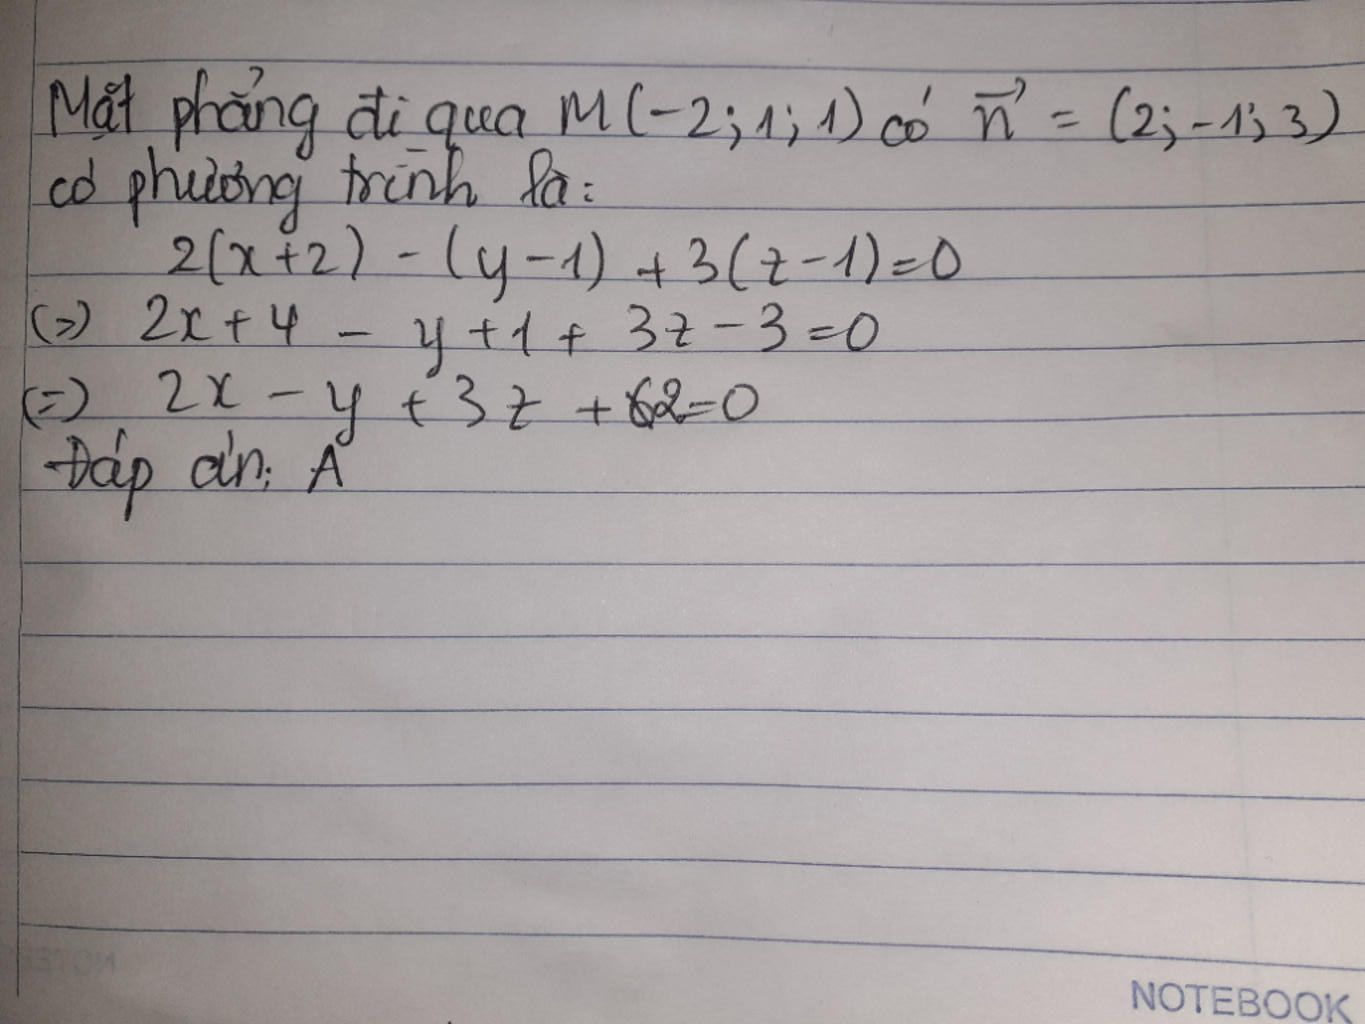 Mặt phẳng đi qua M(-2;1;1) có n⃗ = (2;-1;3)
có phương trình là:
2(x+2) - (y-1) + 3(z-1)=0
(=) 2x+4 - y+1 + 3z-3=0
(=) 2x - y + 3z + 2=0
Đáp án: A
NOTEBOOK